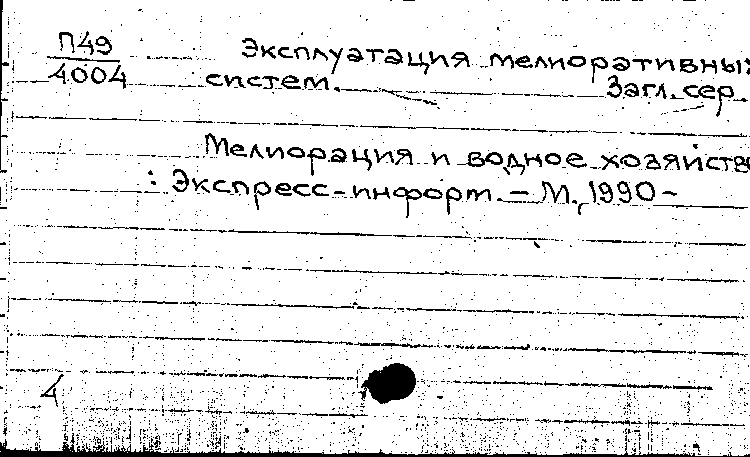 П49
4004
Эксплуатация мелиоративных
систем. Загл. сер.
Мелиорация и водное хозяйство
: Экспресс-информ. – М., 1990 –